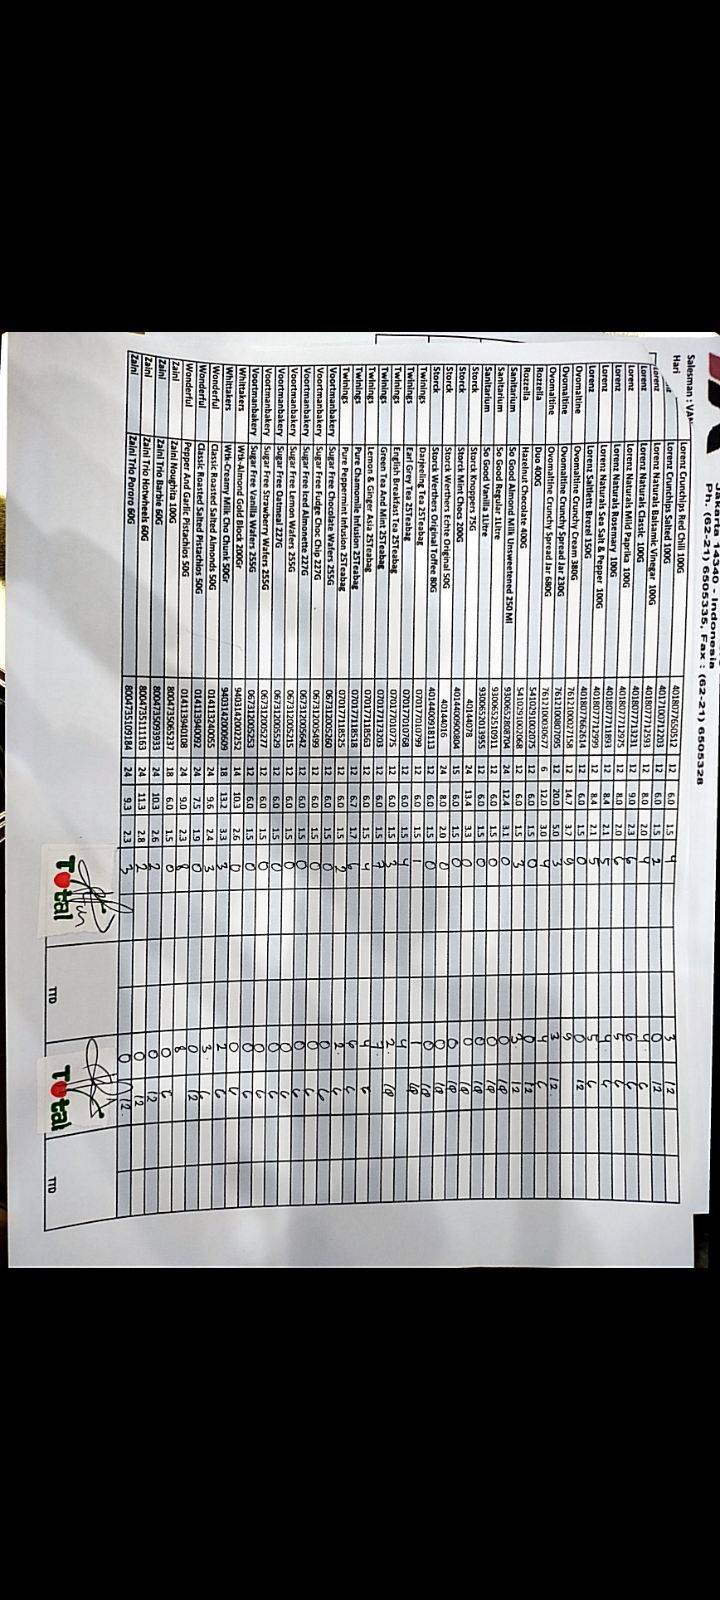 Jakarta 14340 - Indonesia
Ph. (62-21) 6505335, Fax : (62-21) 6505328
Salesman :
Hari
Lorenz Crunchips Red Chili 100G
Lorenz Crunchips Salted 100G 4018077650512 12 6.0 1.5 4 3 12
Lorenz Lorenz Naturals Balsamic Vinegar 100G 4017100712203 12 6.0 1.5 2 0 12
Lorenz Lorenz Naturals Classic 100G 4018077712593 12 8.0 2.0 4 4 6
Lorenz Lorenz Naturals Mild Paprika 100G 4018077713231 12 9.0 2.3 6 6 6
Lorenz Lorenz Naturals Rosemary 100G 4018077712975 12 8.0 2.0 6 5 6
Lorenz Lorenz Naturals Sea Salt & Pepper 100G 4018077711893 12 8.4 2.1 5 4 6
Lorenz Lorenz Saltletts Brezel 150G 4018077712999 12 8.4 2.1 5 5 6
Ovomaltine Ovomaltine Crunchy Cream 380G 4018077662614 12 6.0 1.5 0 0 12
Ovomaltine Ovomaltine Crunchy Spread Jar 230G 7612100027158 12 14.7 3.7 9 9
Ovomaltine Ovomaltine Crunchy Spread Jar 680G 7612100807095 12 20.0 5.0 3 3 12
Rozzella Duo 400G 7612100030677 6 12.0 3.0 4 4 6
Rozzella Hazelnut Chocolate 400G 5410291002075 12 6.0 1.5 0 0 12
Sanitarium So Good Almond Milk Unsweetened 250 Ml 5410291002068 12 6.0 1.5 3 3 12
Sanitarium So Good Regular 1Litre 9300652808704 24 12.4 3.1 0 0 18
Sanitarium So Good Vanilla 1Litre 9300652510911 12 6.0 1.5 0 0 18
Storck Storck Knoppers 75G 9300652013955 12 6.0 1.5 0 0 18
Storck Storck Mint Chocs 200G 40144078 24 13.4 3.3 0 0 18
Storck Storck Werthers Echte Original 50G 4014400900804 15 6.0 1.5 0 0 18
Storck Storck Werthers Original Toffee 80G 40144016 24 8.0 2.0 0 0 18
Twinings Darjeeling Tea 25Teabag 4014400918113 12 6.0 1.5 0 0 18
Twinings Earl Grey Tea 25Teabag 070177010799 12 6.0 1.5 1 1 18
Twinings English Breakfast Tea 25Teabag 070177010768 12 6.0 1.5 4 4
Twinings Green Tea And Mint 25Teabag 070177010775 12 6.0 1.5 3 2 18
Twinings Lemon & Ginger Asia 25Teabag 070177173203 12 6.0 1.5 7 7
Twinings Pure Chamomile Infusion 25Teabag 070177118563 12 6.0 1.5 4 4 6
Twinings Pure Peppermint Infusion 25Teabag 070177118518 12 6.7 1.7 6 6 6
Voortmanbakery Sugar Free Chocolate Wafers 255G 070177118525 12 6.0 1.5 2 2 6
Voortmanbakery Sugar Free Fudge Choc Chip 227G 067312005260 12 6.0 1.5 0 0 6
Voortmanbakery Sugar Free Iced Almonette 227G 067312005499 12 6.0 1.5 0 0 6
Voortmanbakery Sugar Free Lemon Wafers 255G 067312005642 12 6.0 1.5 0 0 6
Voortmanbakery Sugar Free Oatmeal 227G 067312005215 12 6.0 1.5 0 0 6
Voortmanbakery Sugar Free Strawberry Wafers 255G 067312005529 12 6.0 1.5 0 0 6
Voortmanbakery Sugar Free Vanilla Wafers 255G 067312005277 12 6.0 1.5 0 0 6
Whittakers Wtk-Almond Gold Block 200Gr 067312005253 12 6.0 1.5 0 0 6
Whittakers Wtk-Creamy Milk Cho Chunk 50Gr 9403142000252 14 10.3 2.6 0 0 6
Wonderful Classic Roasted Salted Almonds 50G 9403142000609 18 13.2 3.3 3 2 6
Wonderful Classic Roasted Salted Pistachios 50G 014113240055 24 9.6 2.4 3 3 6
Wonderful Pepper And Garlic Pistachios 50G 014113940092 24 7.5 1.9 0 0 12
Zaini Zaini Noughita 100G 014113940108 24 9.0 2.3 8 8
Zaini Zaini Trio Barbie 60G 8004735065237 18 6.0 1.5 0 0 6
Zaini Zaini Trio Hotwheels 60G 8004735093933 24 10.3 2.6 2 0 12
Zaini Zaini Trio Pororo 60G 8004735111163 24 11.3 2.8 2 0 12
8004735109184 24 9.3 2.3 3 0 12
Total TTD Total TTD